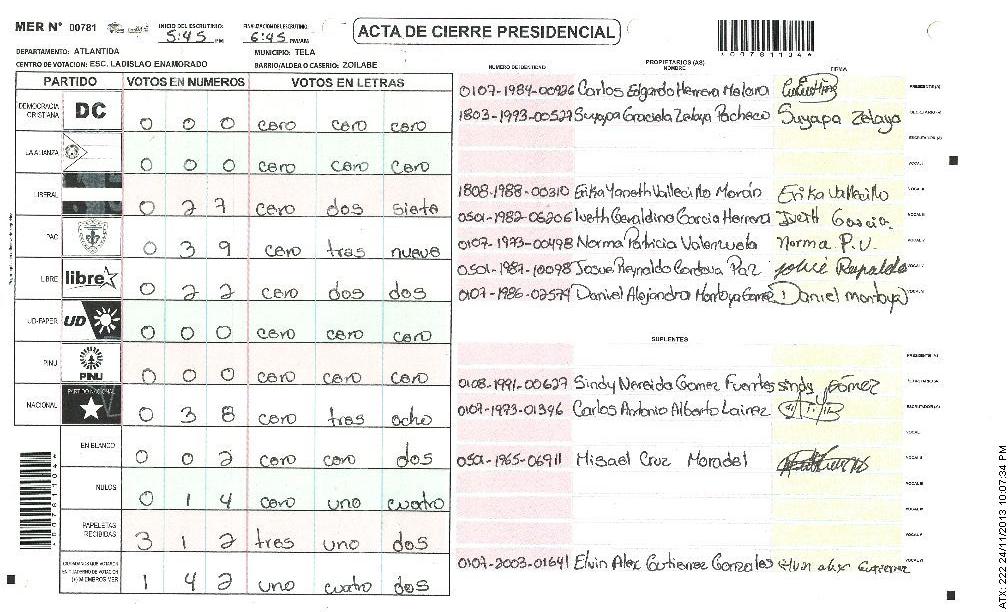 MER N° 00781
INICIO DEL ESCRUTINIO:
5:45 PM
FINALIZACION ESCRUTINIO:
6:45 PM/AM
ACTA DE CIERRE PRESIDENCIAL
* 0 0 7 8 1 1 0 4 *
DEPARTAMENTO: ATLANTIDA
MUNICIPIO: TELA
CENTRO DE VOTACION: ESC. LADISLAO ENAMORADO
BARRIO/ALDEA O CASERIO: ZOILABE
PARTIDO VOTOS EN NUMEROS VOTOS EN LETRAS
DEMOCRACIA CRISTIANA DC 0 0 0 cero cero cero
LA ALIANZA 0 0 0 cero cero cero
LIBERAL 0 2 7 cero dos siete
PAC 0 3 9 cero tres nueve
LIBRE libre 0 2 2 cero dos dos
UD-FAPER UD 0 0 0 cero cero cero
PINU PINU 0 0 0 cero cero cero
NACIONAL PARTIDO NACIONAL 0 3 8 cero tres ocho
EN BLANCO 0 0 2 cero cero dos
NULOS 0 1 4 cero uno cuatro
PAPELETAS RECIBIDAS 3 1 2 tres uno dos
CIUDADANOS QUE VOTARON EN CUADERNO DE VOTACION (+) MIEMBROS MER 1 4 2 uno cuatro dos
NUMERO DE IDENTIDAD PROPIETARIOS (AS) NOMBRE FIRMA
0107-1984-00926 Carlos Edgardo Herrera Melara PRESIDENTE (A)
1803-1993-00527 Suyapa Graciela Zelaya Pacheco Suyapa Zelaya SECRETARIO (A)
ESCRUTADOR (A)
VOCAL I
1808-1988-00310 Erika Yaneth Vallecillo Morán Erika Vallecillo
0501-1982-06206 Iveth Geraldina Garcia Herrera Iveth Garcia
0107-1973-00498 Norma Patricia Valenzuela Norma P. V.
0501-1987-10098 Josue Reynaldo Cordova Paz
0107-1986-02574 Daniel Alejandro Montoya Gomez Daniel montoya
SUPLENTES
PRESIDENTE (A)
0108-1991-00627 Sindy Nereida Gomez Fuentes sindy gómez SECRETARIO (A)
0107-1973-01396 Carlos Antonio Alberto Lainez ESCRUTADOR (A)
0501-1965-06911 Misael Cruz Moradel
0107-2003-01641 Elvin Alex Gutierrez Gonzales elvin alex Gutierrez
* 0 0 7 8 1 1 0 4 *
ATX: 222 24/11/2013 10:07:34 PM